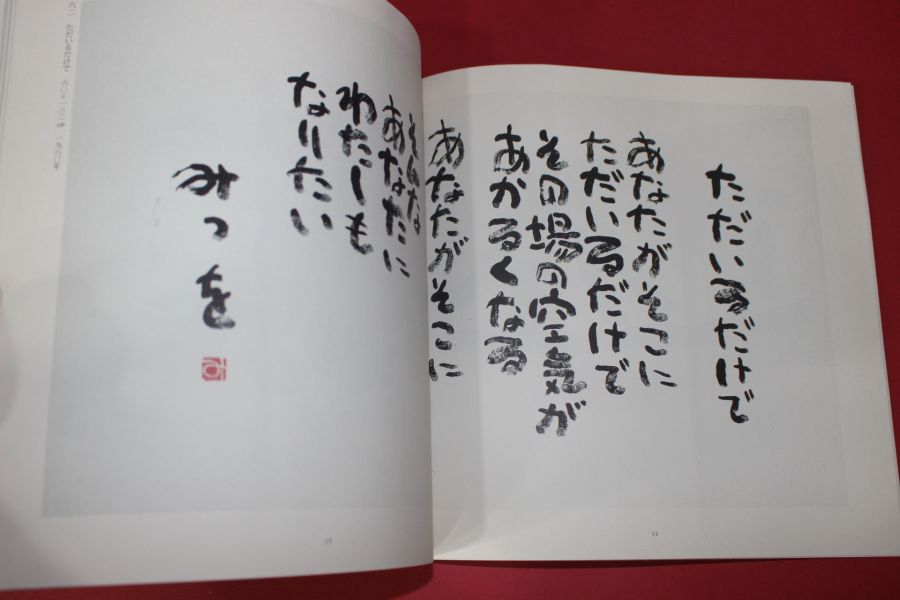 ただいるだけで
あなたがそこに
ただいるだけで
その場の空気が
あかるくなる
あなたがそこに
そんな
あなたに
わたしも
なりたい
みつを
ただいるだけで
14
15